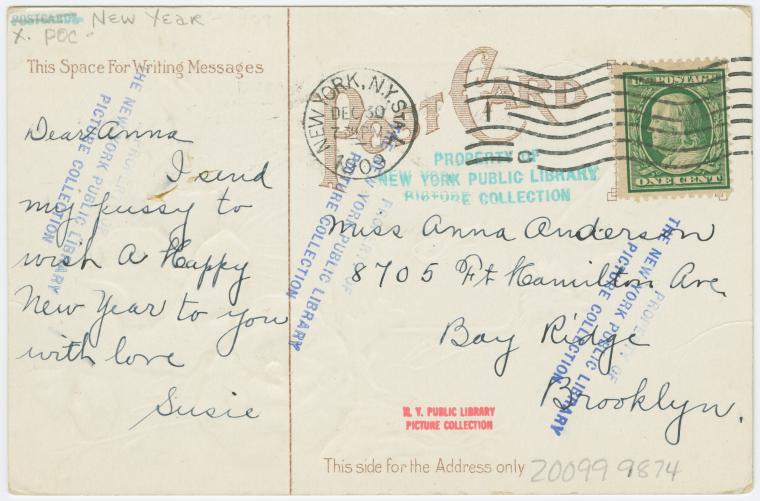 POSTCARDS New Year
X. POC-
This Space For Writing Messages
Dear Anna
I send
my pussy to
wish A Happy
New Year to you
with love
Susie
POST CARD
NEW YORK, N.Y. STA.
DEC 30
1909
U.S. POSTAGE
ONE CENT
PROPERTY OF
NEW YORK PUBLIC LIBRARY
PICTURE COLLECTION
Miss Anna Anderson
8705 Ft. Hamilton Ave
Bay Ridge
Brooklyn.
PROPERTY OF
THE NEW YORK PUBLIC LIBRARY
PICTURE COLLECTION
PROPERTY OF
THE NEW YORK PUBLIC LIBRARY
PICTURE COLLECTION
PROPERTY OF
THE NEW YORK PUBLIC LIBRARY
PICTURE COLLECTION
N. Y. PUBLIC LIBRARY
PICTURE COLLECTION
This side for the Address only
20099 9874